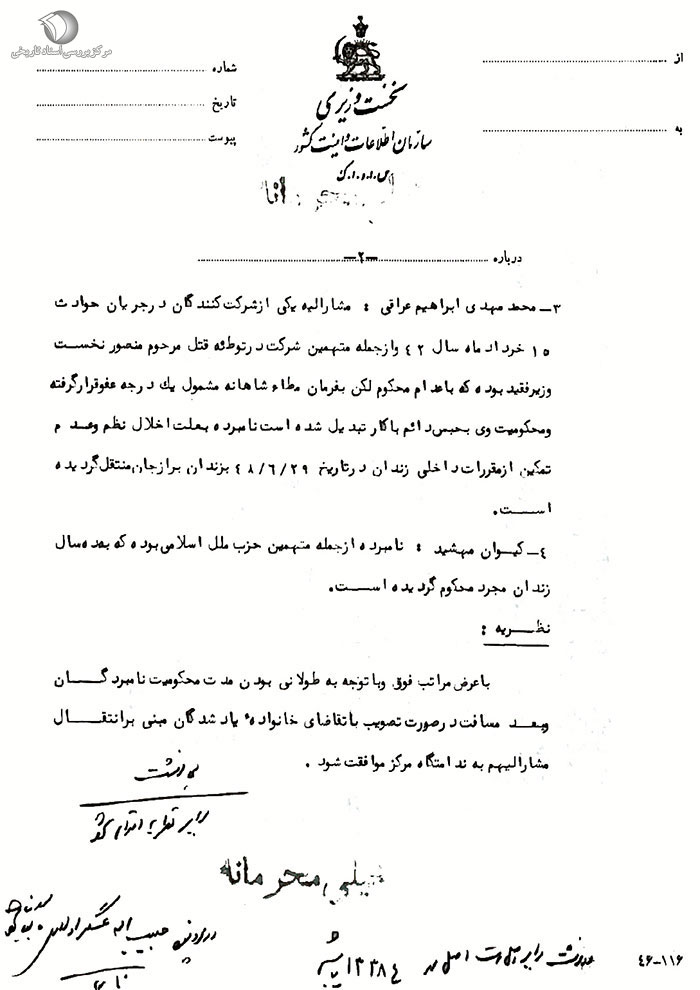 مرکز بررسی اسناد تاریخی
از
به
شماره
تاریخ
پیوست
نخست وزیری
سازمان اطلاعات و امنیت کشور
س.ا.و.ا.ک
درباره
-۲-
۳- محمد مهدی ابراهیم عراقی : مشارالیه یکی از شرکت کنندگان در جریان حوادث
۱۵ خرداد ماه سال ۴۲ و از جمله متهمین شرکت در توطئه قتل مرحوم منصور نخست
وزیر فقید بوده که باعدام محکوم لکن بفرمان مطاع شاهانه مشمول یک درجه عفو قرار گرفته
و محکومیت وی بحبس دائم با کار تبدیل شده است نامبرده بعلت اخلال نظم و عدم
تمکین از مقررات داخلی زندان در تاریخ ۴۸/۶/۲۹ بزندان برازجان منتقل گردیده
است.
۴- کیوان مهشید : نامبرده از جمله متهمین حزب ملل اسلامی بوده که بده سال
زندان مجرد محکوم گردیده است.
نظریه :
با عرض مراتب فوق و با توجه به طولانی بودن مدت محکومیت نامبردگان
و بعد مسافت در صورت تصویب با تقاضای خانواده یاد شدگان مبنی بر انتقال
مشارالیهم به ندامتگاه مرکز موافقت شود .
برابر نظریه اقدام شود
خیلی محرمانه
در پرونده حبیب اله عسگراولادی
۴۶-۱۱۶